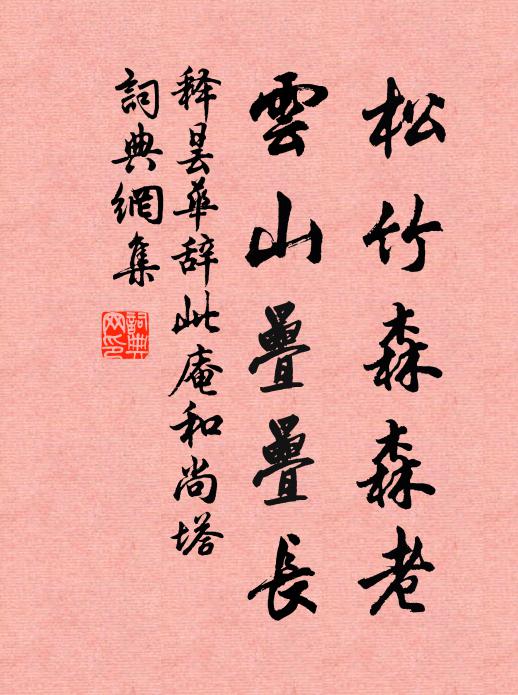 松竹森森老
雲山疊疊長
释曇華辞此庵和尚塔
詞典網集
詞典
网印